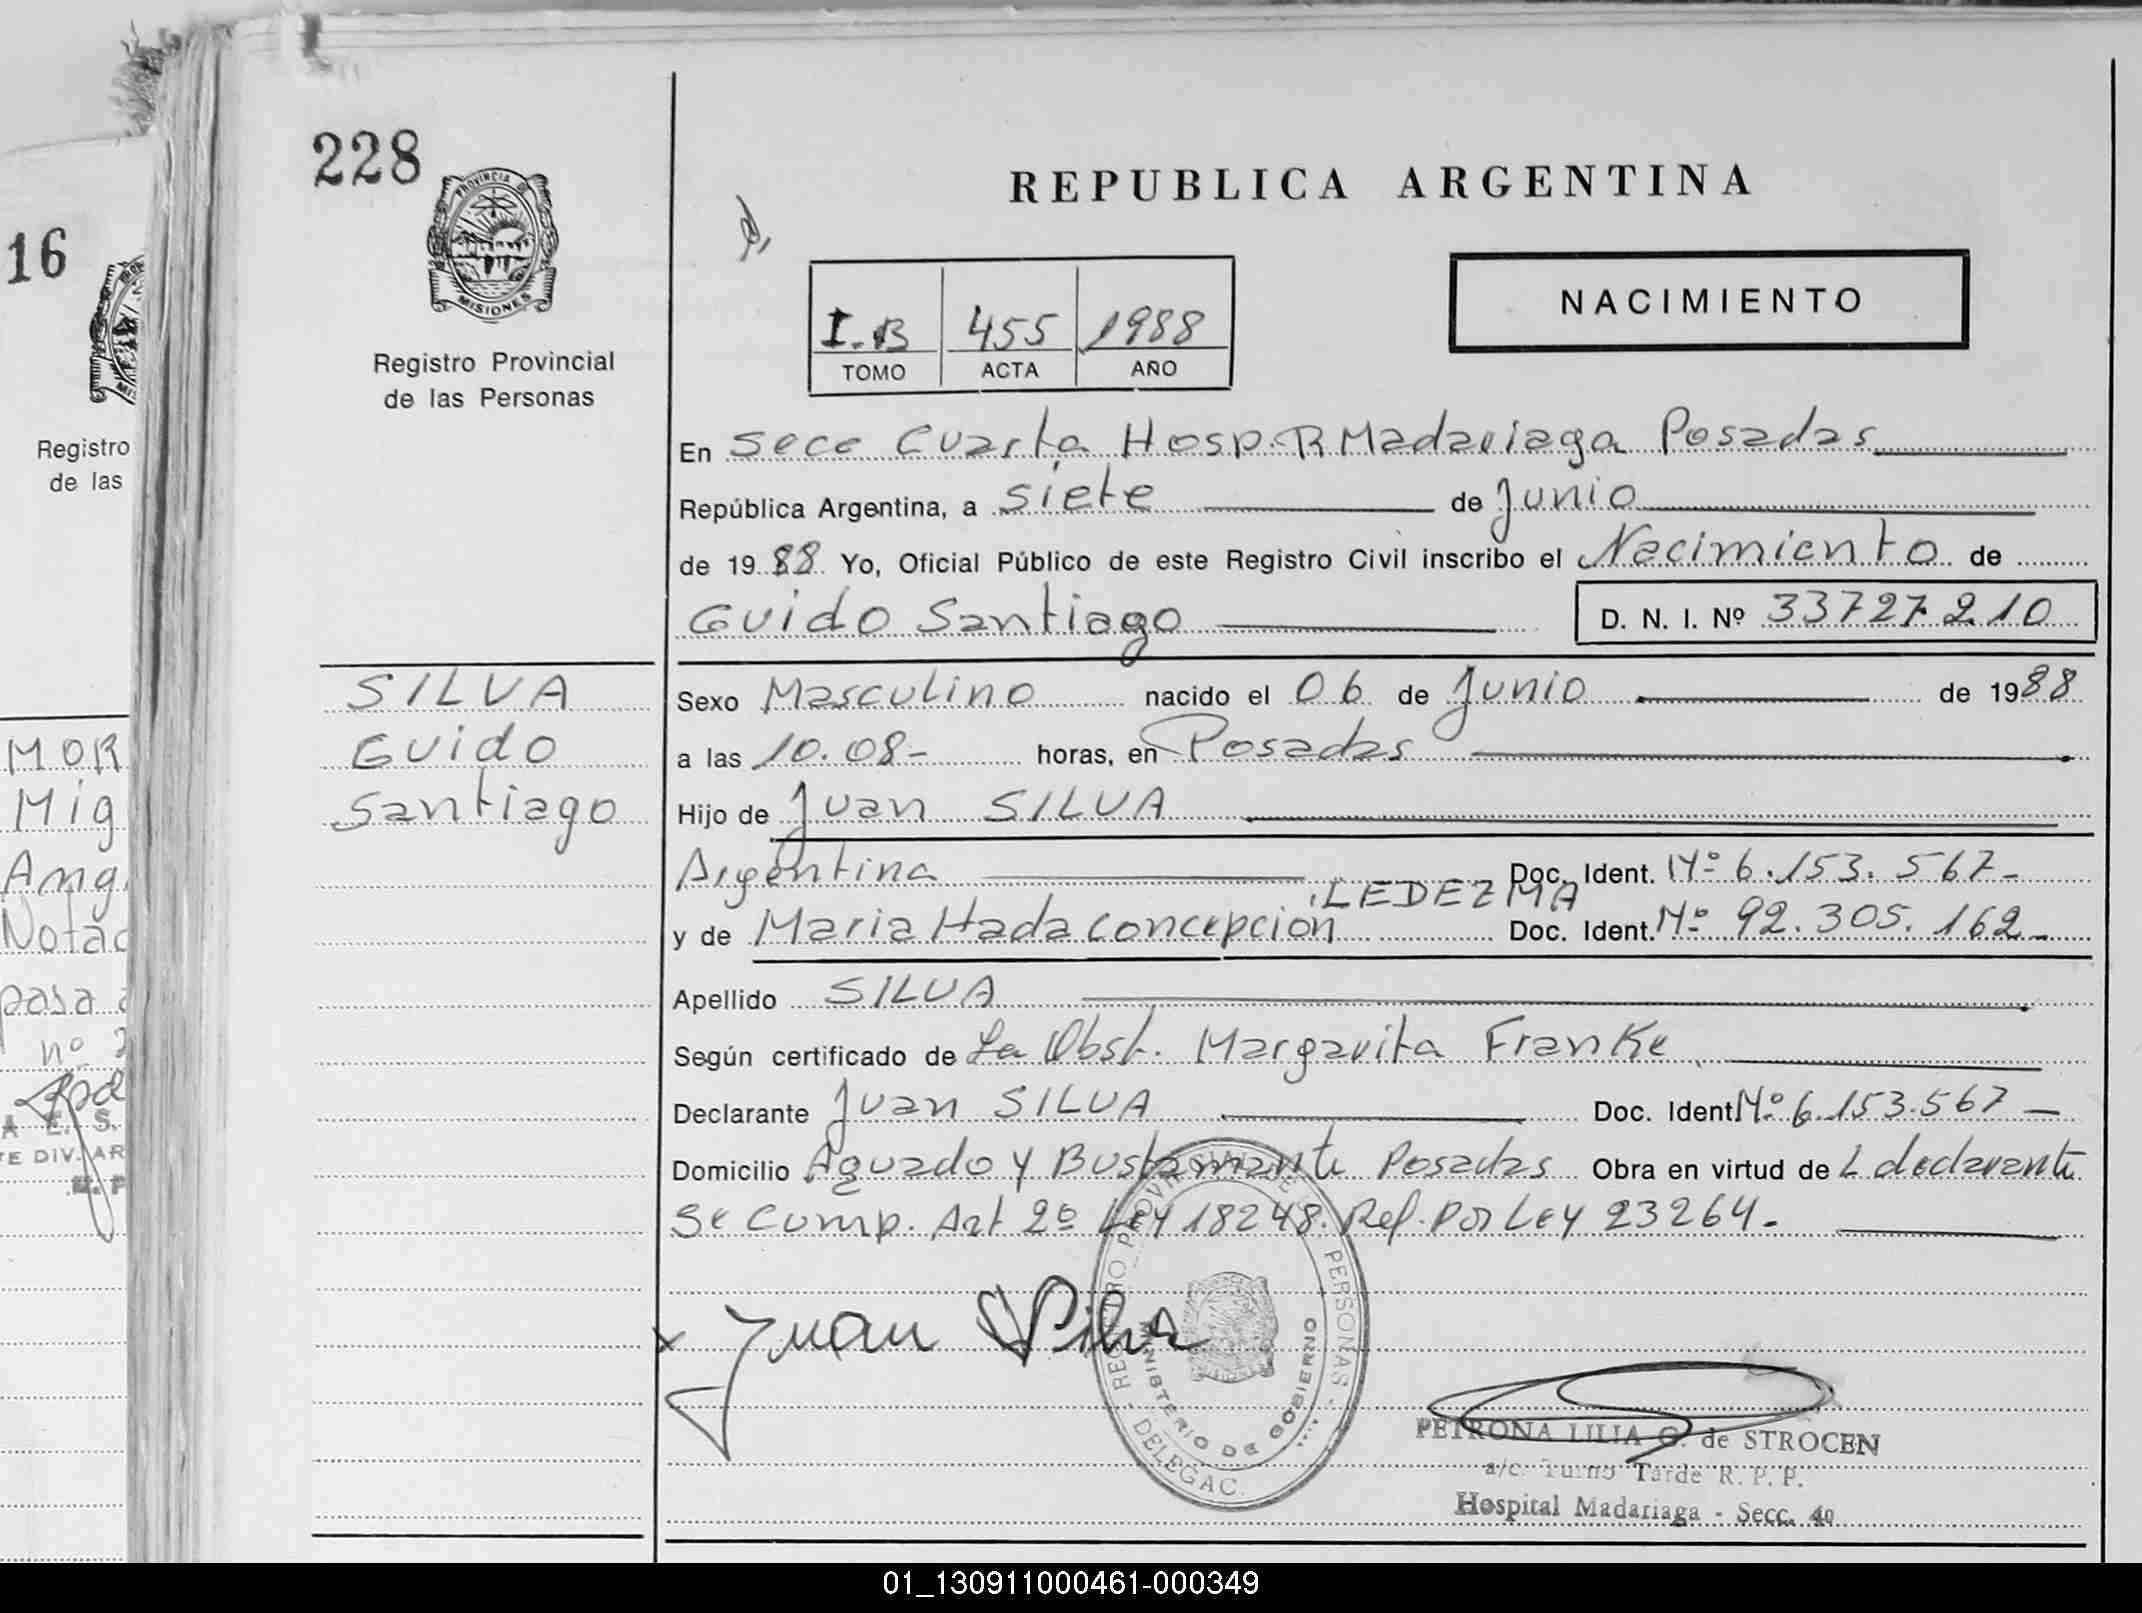 228
PROVINCIA DE
MISIONES
Registro Provincial
de las Personas
REPUBLICA ARGENTINA
I.B 455 1988
TOMO ACTA AÑO
NACIMIENTO
En Secc Cuarta Hosp. R Madariaga Posadas
República Argentina, a siete de Junio
de 1988 Yo, Oficial Público de este Registro Civil inscribo el Nacimiento de
Guido Santiago D. N. I. Nº 33727210
SILVA
Guido
Santiago
Sexo Masculino nacido el 06 de Junio de 1988
a las 10.08- horas, en Posadas
Hijo de Juan SILVA
Argentina Doc. Ident. Nº 6.153.567-
LEDEZMA
y de Maria Hada Concepcion Doc. Ident. Nº 92.305.162-
Apellido SILVA
Según certificado de La Obst. Margarita Franke
Declarante Juan SILVA Doc. Ident Nº 6.153.567
Domicilio Aguado y Bustamante Posadas Obra en virtud de L declarante
Se Comp. Art 2º Ley 18248. Ref. Por Ley 23264.
Juan Silva
REGISTRO PROVINCIAL DE PERSONAS - DELEGAC.
MINISTERIO DE GOBIERNO
PETRONA LILIA G. de STROCEN
a/c. Turno Tarde R. P. P.
Hospital Madariaga - Secc. 4º
16
Registro
de las
MOR
Mig
Ang
Nota
pasa a
nº 2
E. S.
TE DIV. AR
01_130911000461-000349